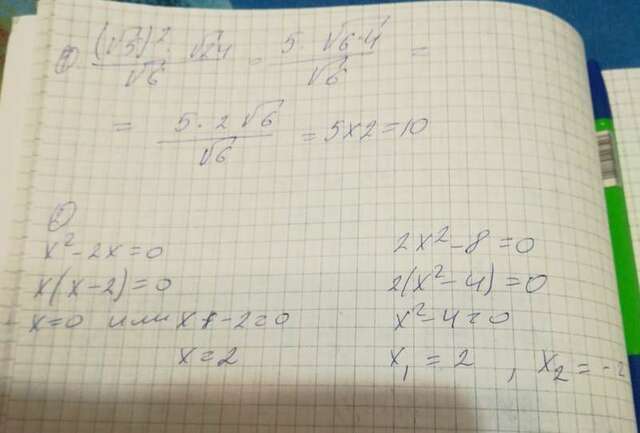 ① (√5)² · √24 / √6 = 5 · √6·4 / √6 =
= 5 · 2√6 / √6 = 5×2=10
②
x²-2x=0
x(x-2)=0
x=0 или x-2=0
x=2
2x²-8=0
2(x²-4)=0
x²-4=0
x₁=2, x₂=-2